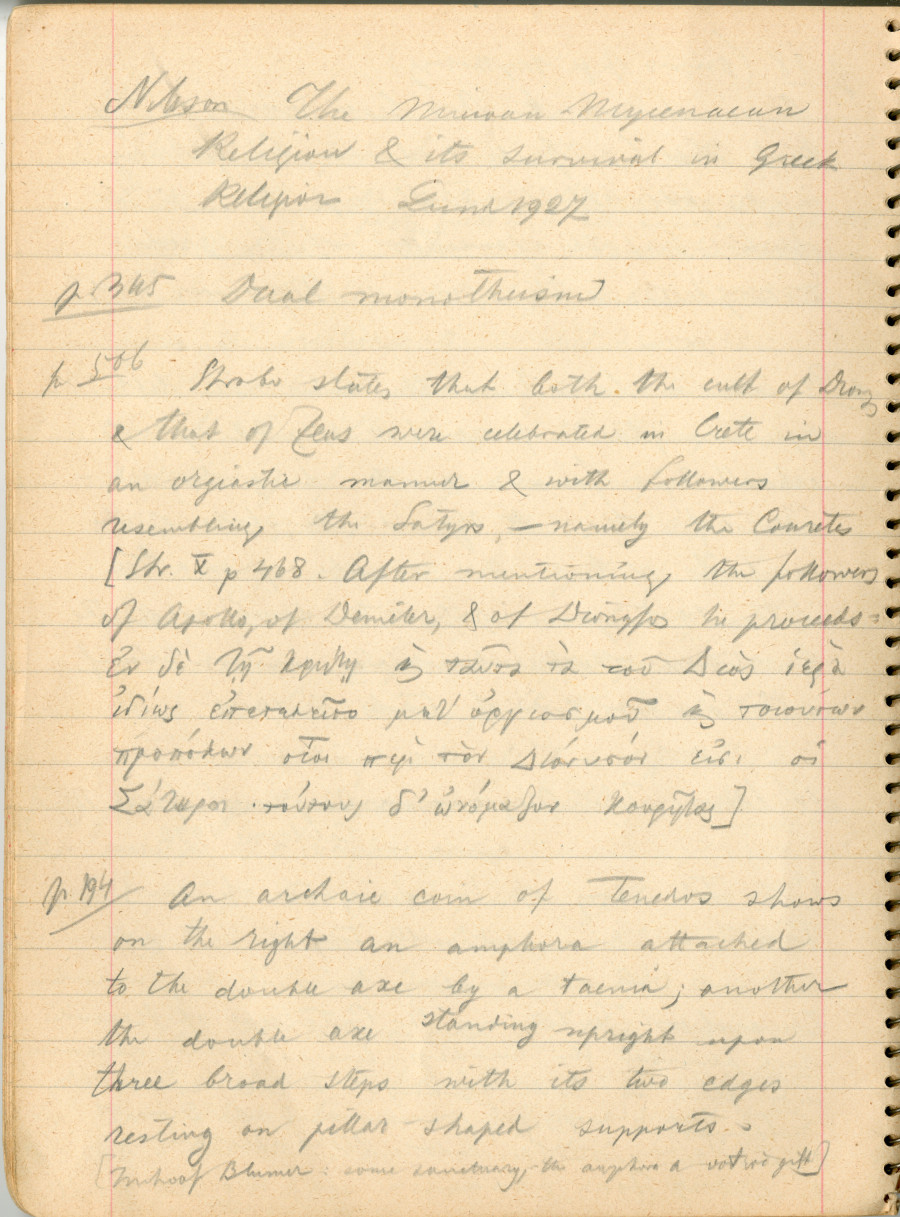 Nilsson The Minoan-Mycenaean
Religion & its survival in Greek
Religion Lund 1927
p. 345 Dual monotheism
p 506 Strabo states that both the cult of Diony
& that of Zeus were celebrated in Crete in
an orgiastic manner & with followers
resembling the Satyrs, – namely the Couretes
[Str. X p 468. After mentioning the followers
of Apollo, of Demeter, & of Dionysos he proceeds:
ἐν δὲ τῇ Κρήτῃ ϗ ταῦτα τὰ τοῦ Διὸς ἱερὰ
ἰδίως ἐπετελεῖτο μετ' ὀργιασμοῦ ϗ τοιούτων
προπόλων οἷοι περὶ τὸν Διόνυσόν εἰσι οἱ
Σάτυροι τούτους δ' ὠνόμαζον Κουρῆτας]
p. 194 An archaic coin of Tenedos shows
on the right an amphora attached
to the double axe by a taenia; another
the double axe standing upright upon
three broad steps with its two edges
resting on pillar shaped supports.
[Imhoof Blumer: some sanctuary, the amphora a votive gift]